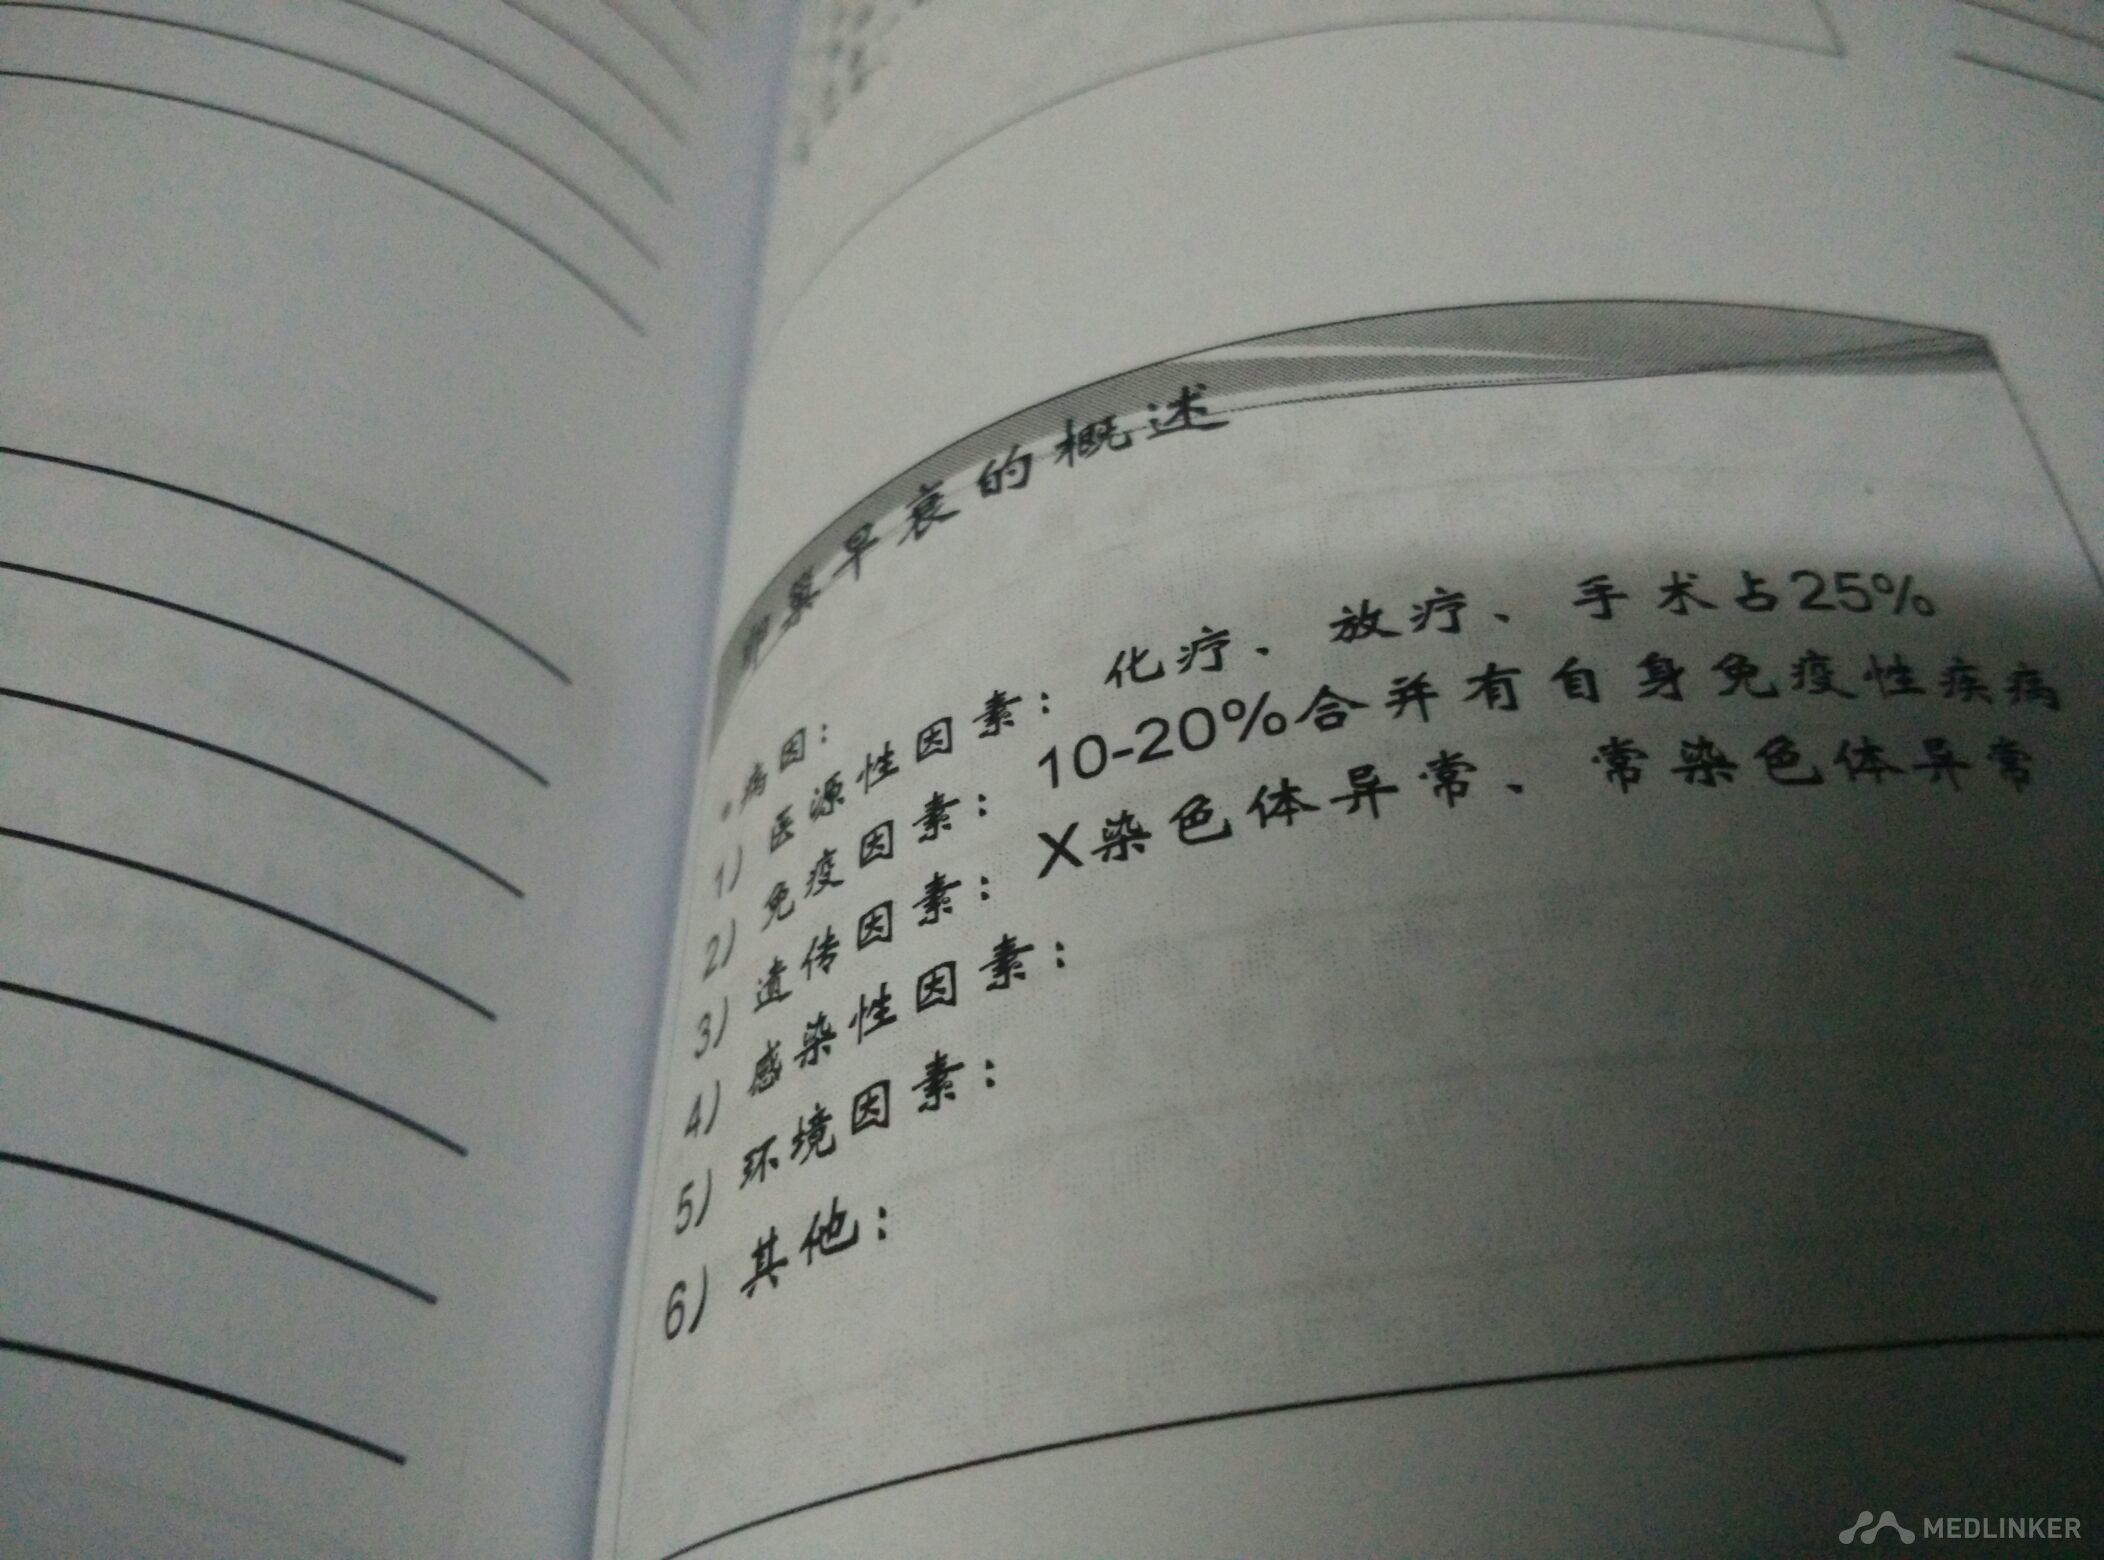 卵巢早衰的概述
•病因：
1）医源性因素：化疗、放疗、手术占25%
2）免疫因素：10-20%合并有自身免疫性疾病
3）遗传因素：X染色体异常、常染色体异常
4）感染性因素：
5）环境因素：
6）其他：
MEDLINKER